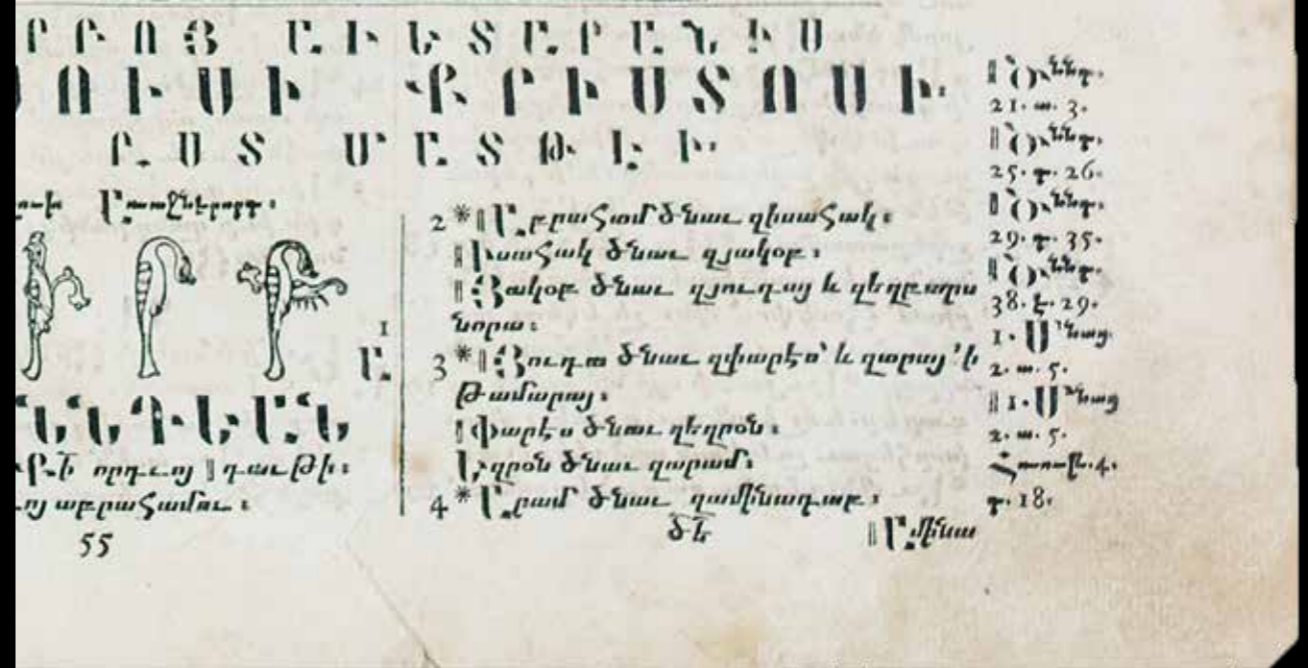 ՐԲՈՅ ԱՒԵՏԱՐԱՆԻՍ
ՅՈՒՍԻ ՔՐԻՍՏՈՍԻ.
ԸՍՏ ՄԱՏԹԷԻ.
Առաջներորդ։
որդւոյ դաւթի։
աբրահամու։
55
1
Ա.
2 * Աբրահամ ծնաւ զիսահակ։
Իսահակ ծնաւ զյակօբ։
Յակօբ ծնաւ զյուդայ և զեղբարս
նորա։
3 * Յուդա ծնաւ զփարէս՝ և զարայ ՚ի
թամարայ։
Փարէս ծնաւ զեզրօն։
Եզրօն ծնաւ զարամ։
4 * Արամ ծնաւ զամինադաբ։
ծե
Ամինա
Ծննդ.
21. ա. 3.
Ծննդ.
25. դ. 26.
Ծննդ.
29. դ. 35.
Ծննդ.
38. է. 29.
1. Մնաց.
2. ա. 5.
1. Մնաց
2. ա. 5.
Հռութ. 4.
դ. 18.